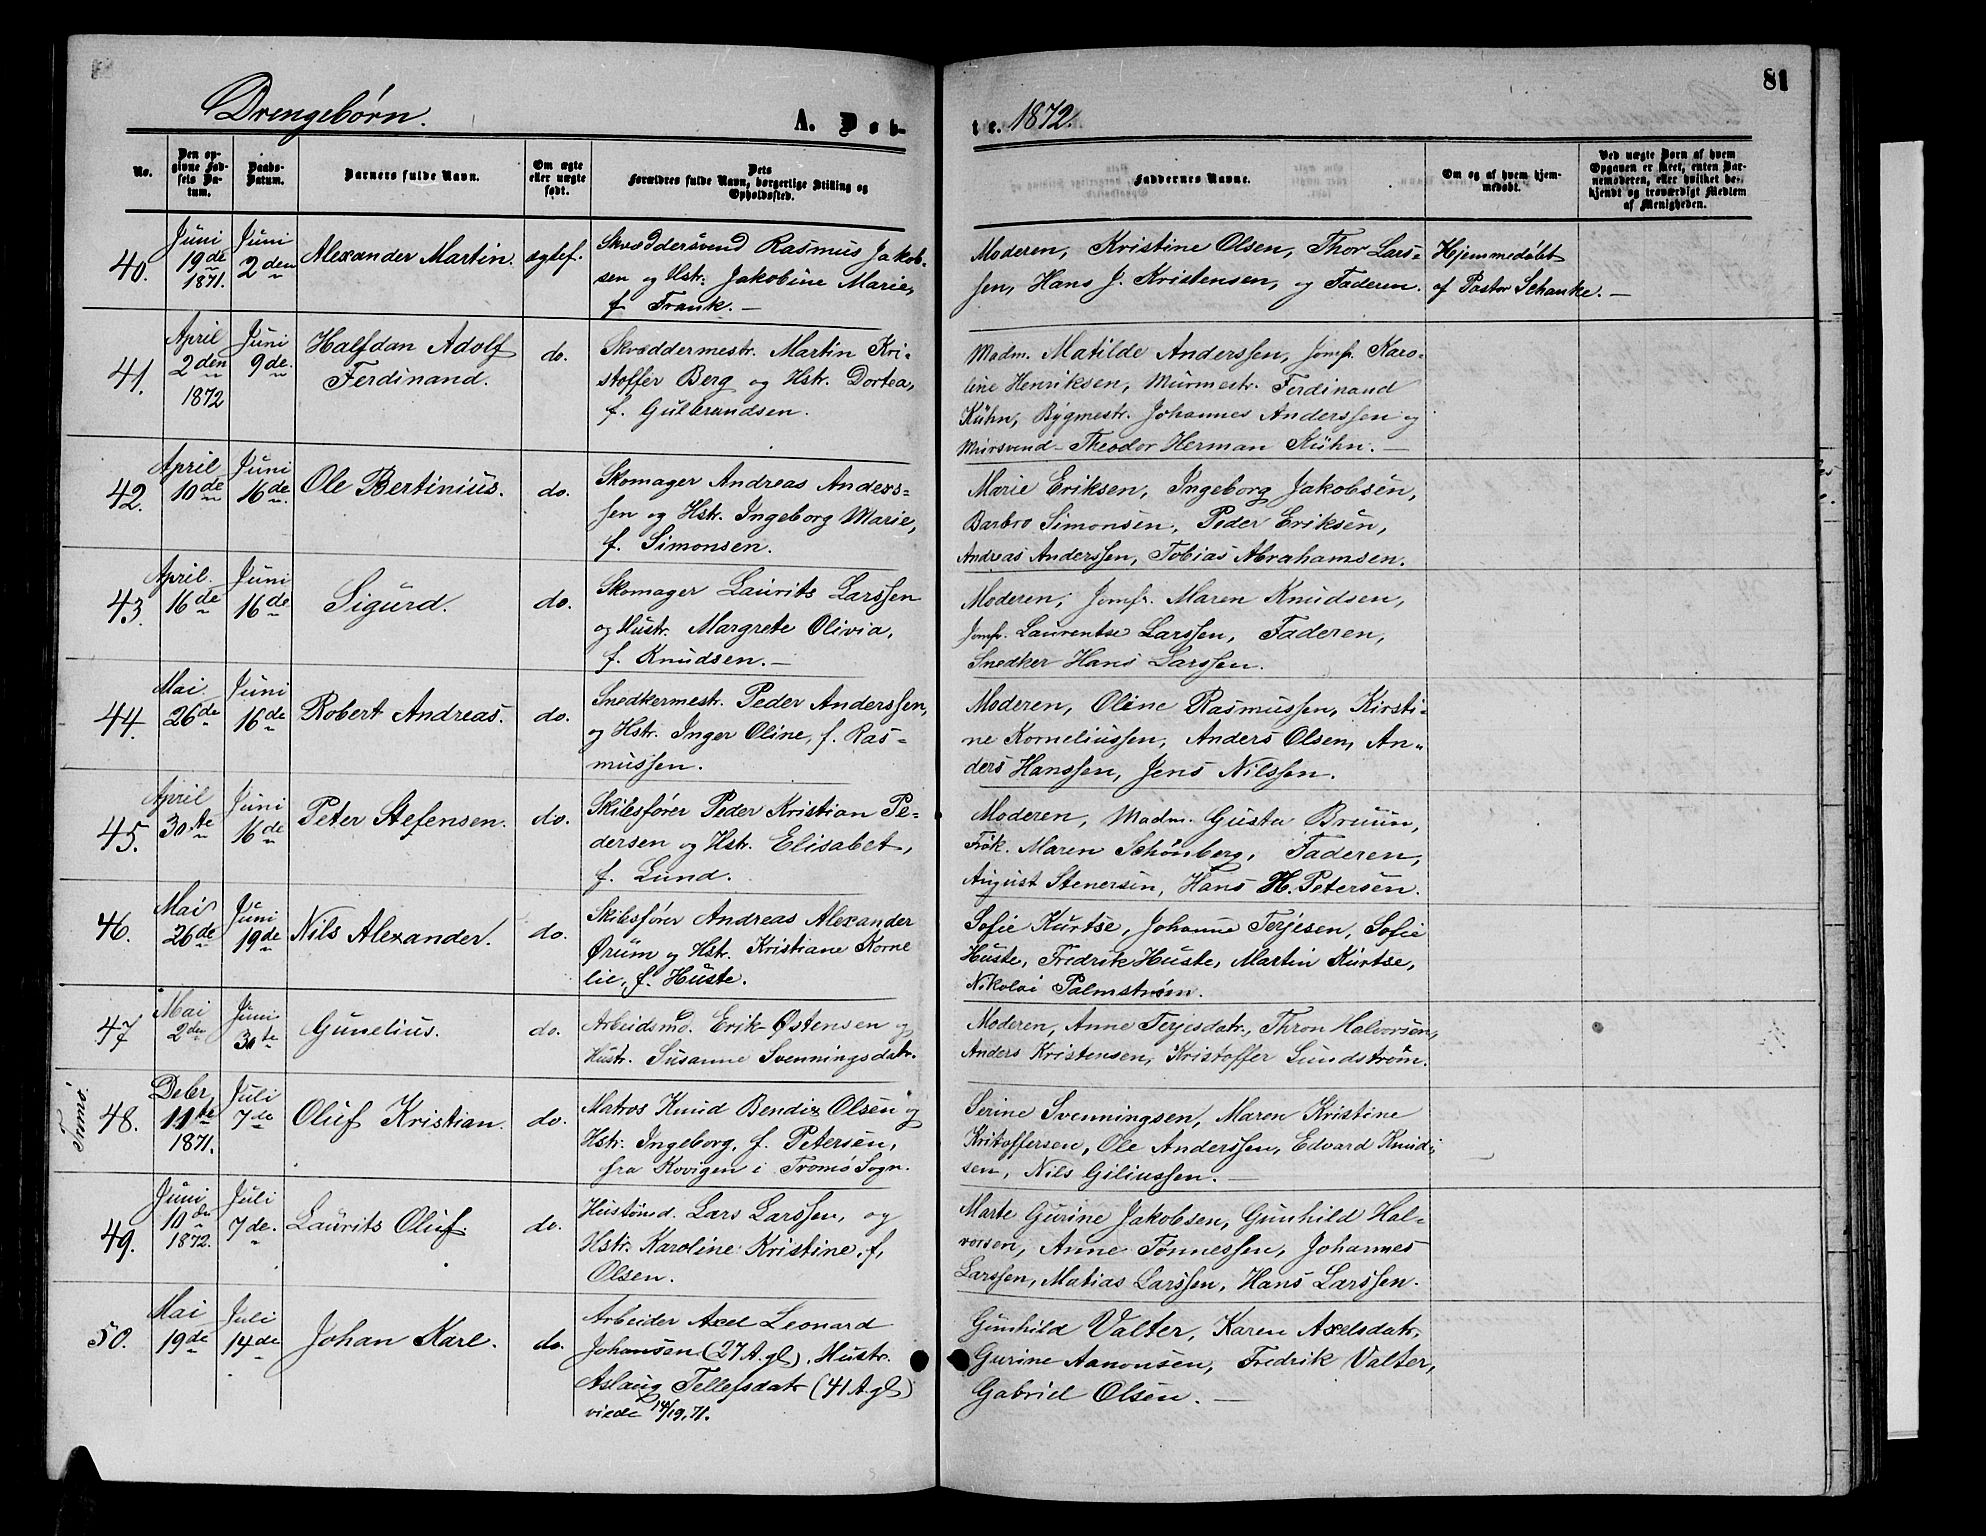 81
Drengebørn.
A. Døb-
te. 1872.
No.
Den opgivne Fødsels Datum.
Daabs-Datum.
Barnets fulde Navn.
Om ægte eller uægte født.
Dets Forældres fulde Navn, borgerlige Stilling og Opholdssted.
Faddernes Navne.
Om og af hvem hjemmedøbt.
Ved uægte Børn af hvem Opgaven er skeet, enten Barnemoderen, eller hvilket bekjendt og troværdigt Medlem af Menigheden.
40. Juni 19de 1871. Juni 2den Alexander Martin. ægtef.
Skræddersvend Rasmus Jakob-
sen og Hstr. Jakobine Marie,
f. Frank. —
Moderen, Kristine Olsen, Thor Lars-
sen, Hans J. Kristensen, og Faderen.
Hjemmedøbt
af Pastor Schanke. —
41. April 2den 1872 Juni 9de Halfdan Adolf
Ferdinand. do.
Skræddermestr. Martin Kri-
stoffer Berg og Hstr. Dortea,
f. Gulbrandsen.
Madm. Matilde Anderssen, Jomfr. Karo-
line Henriksen, Murmestr. Ferdinand
Kühn, Bygmestr. Johannes Anderssen og
Mursvend Theodor Herman Kühn. —
42. April 10de Juni 16de Ole Bertinius. do.
Skomager Andreas Anders-
sen og Hstr. Ingeborg Marie,
f. Simonsen.
Marie Eriksen, Ingeborg Jakobsen,
Barbro Simonsen, Peder Eriksen,
Andreas Anderssen, Tobias Abrahamsen.
43. April 16de Juni 16de Sigurd. do.
Skomager Laurits Larssen
og Hustr. Margrete Olivia,
f. Knudsen. —
Moderen, Jomfr. Maren Knudsen,
Jomfr. Laurentse Larssen, Faderen,
Snedker Hans Larssen.
44. Mai 26de Juni 16de Robert Andreas. do.
Snedkermestr. Peder Anderssen,
og Hstr. Inger Oline, f. Ras-
mussen.
Moderen, Oline Rasmussen, Kirsti-
ne Korneliussen, Anders Olsen, An-
ders Hanssen, Jens Nilssen.
45. April 30te Juni 16de Peter Stefensen. do.
Skibsfører Peder Kristian Pe-
dersen og Hstr. Elisabet,
f. Lund.
Moderen, Madm. Gusta Bruun,
Frøk. Maren Schønberg, Faderen,
August Stenersen, Hans H. Petersen.
46. Mai 26de Juni 19de Nils Alexander. do.
Skibsfører Andreas Alexander
Ørum og Hstr. Kristiane Korne
lie, f. Huste.
Sofie Kurtse, Johanne Terjesen, Sofie
Huste, Fredrik Huste, Martin Kurtse,
Nikolai Palmstrøm.
47 Mai 2den Juni 30te Gunelius. do.
Arbeidsmd. Erik Østensen og
Hustr. Susanne Svenningsdatr.
Moderen, Anne Terjesdatr., Thron Halvorsen,
Anders Kristensen, Kristoffer Sundstrøm.
Tromø.
48. Debr. 11te 1871. Juli 7de Oluf Kristian. do.
Matros Knud Bendix Olsen og
Hstr. Ingeborg, f. Petersen,
fra Kovigen i Tromø Sogn.
Serine Svenningsen, Maren Kristine
Kristoffersen, Ole Anderssen, Edvard Knud-
sen, Nils Giliussen. —
49. Juni 10de 1872. Juli 7de. Laurits Oluf. do.
Hustømd. Lars Larssen, og
Hstr. Karoline Kristine, f,
Olsen.
Marte Gurine Jakobsen, Gunhild Hal-
vorsen, Anne Tønnessen, Johannes
Larssen, Matias Larssen, Hans Larssen.
50. Mai 19de Juli 14de Johan Karl. do.
Arbeider Axel Leonard
Johansen (27 A. gl), Hustr.
Aslaug Tellefsdatr (41 A. gl)
viede 14/19. 71.
Gunhild Valter, Karen Axelsdatr,
Gurine Aanonsen, Fredrik Valter,
Gabriel Olsen. —